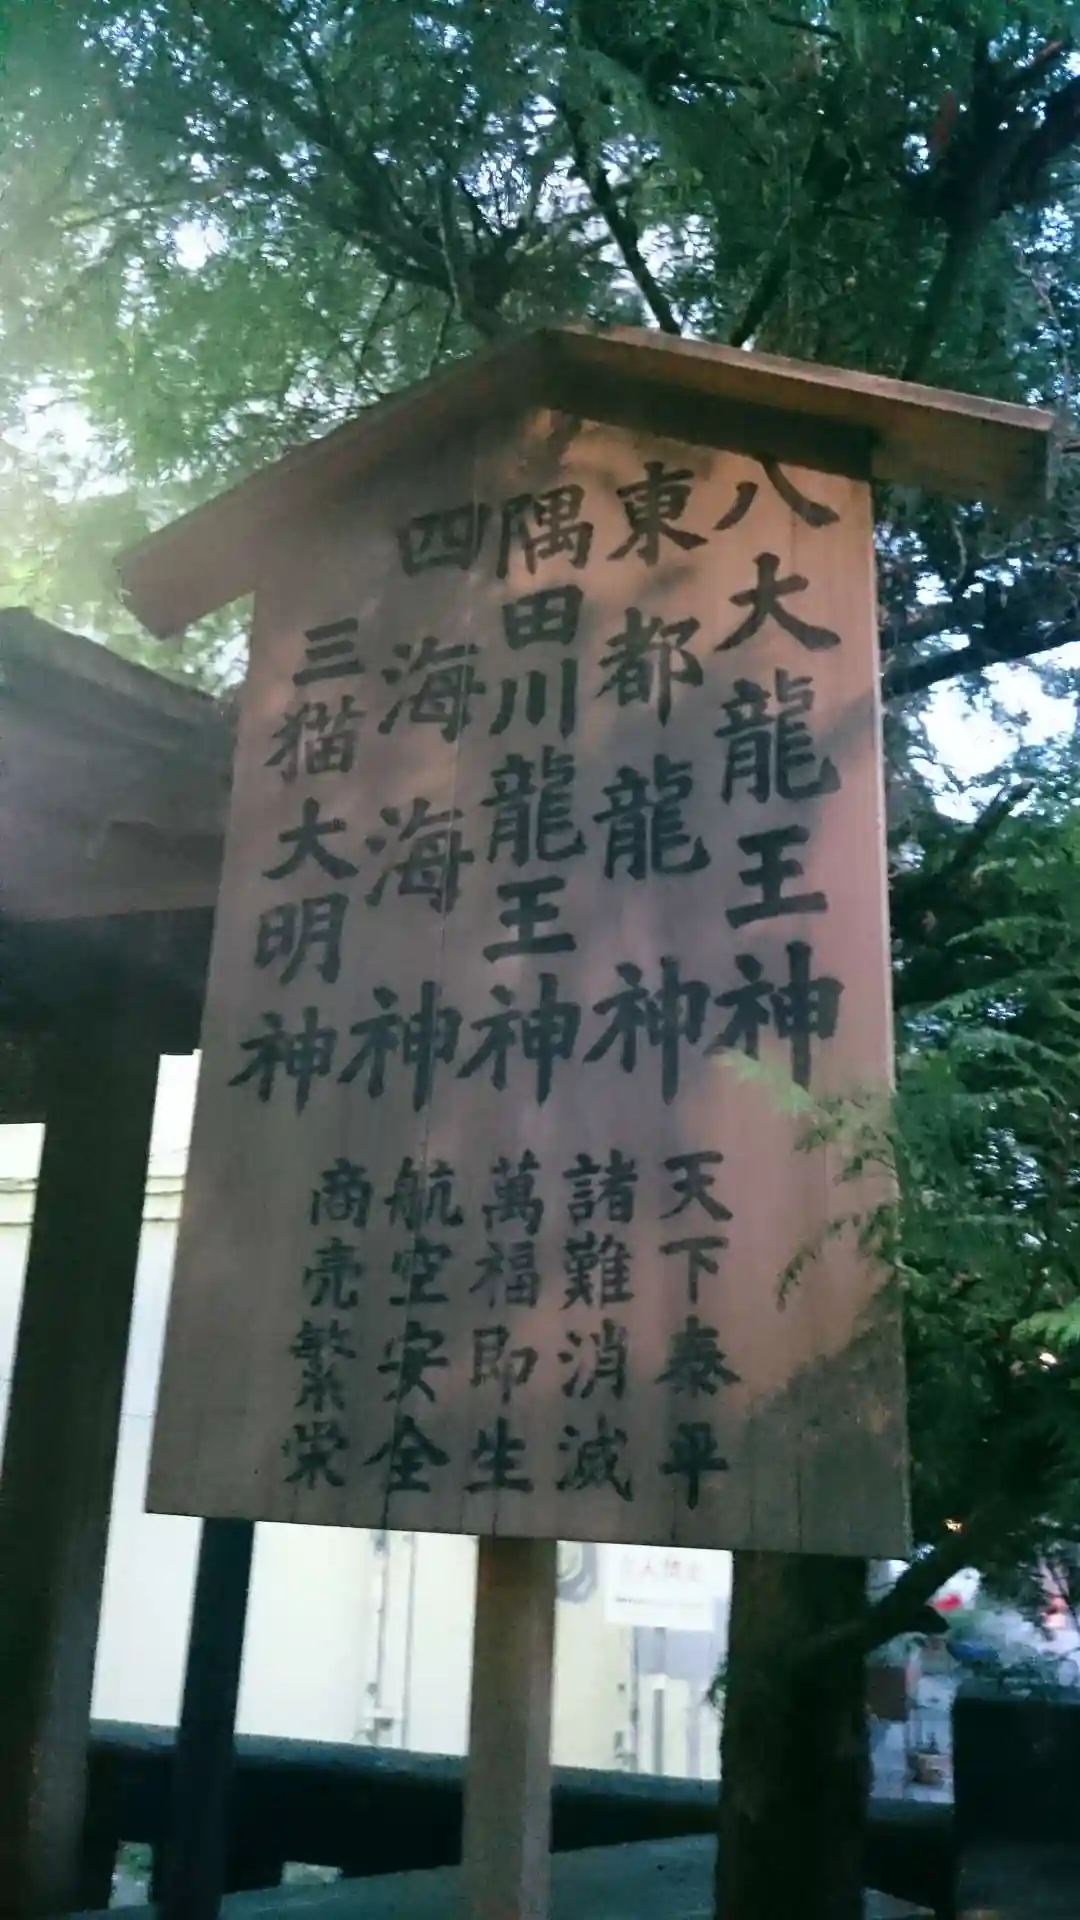 八大龍王神
東都龍神
隅田川龍王神
四海海神
三猫大明神
天下泰平
諸難消滅
萬福即生
航空安全
商売繁栄